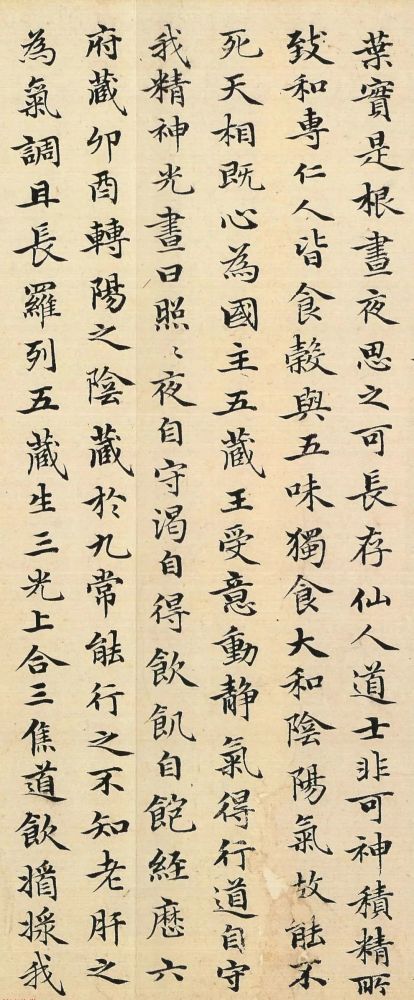 葉實是根晝夜思之可長存仙人道士非可神積精所
致和專仁人皆食穀與五味獨食大和陰陽氣故能不
死天相既心為國主五藏王受意動静氣得行道自守
我精神光晝日照〻夜自守渴自得飲飢自飽經歷六
府藏卯酉轉陽之陰藏於九常能行之不知老肝之
為氣調且長羅列五藏生三光上合三焦道飲漿我